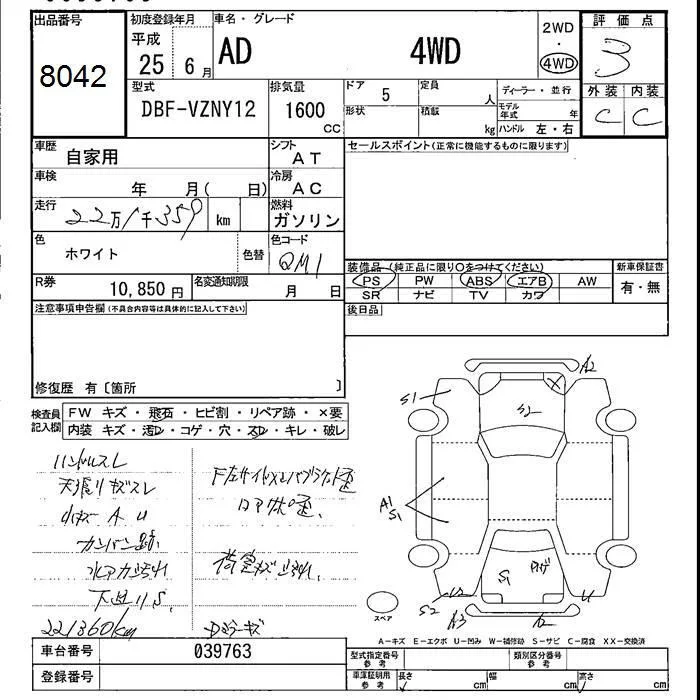 出品番号 初度登録年月 車名・グレード 2WD 評価点
8042 平成 25 6月 AD 4WD ・ 4WD 3
型式 DBF-VZNY12 排気量 1600 CC ドア 5 定員 人 ディーラー・並行 外装 内装
形状 積載 kg モデル年式 年 ハンドル 左・右 C C
車歴 自家用 シフト AT セールスポイント(正常に機能するものに限ります)
車検 年 月( 日) 冷房 AC
走行 22万1千359 km 燃料 ガソリン
色 ホワイト 色替 色コード QM1
装備品(純正品に限り〇をつけてください) 新車保証書
PS PW ABS エアB AW 有・無
SR ナビ TV カワ
R券 10,850円 名変通知期限 月 日
注意事項申告欄(不具合内容等は具体的に記入して下さい) 後日品
修復歴 有〔箇所 〕
検査員記入欄 FW キズ・飛石・ヒビ割・リペア跡・×要
内装 キズ・汚レ・コゲ・穴・スレ・キレ・破レ
A2
S1
S2
ハンドルスレ
天張りキズスレ
小キズ A U
A1
S1
カンバン跡
荷室キズ
下廻りS
S1
U
S2 A3 A2
221360km Dミラーキズ
スペア
A-キズ E-エクボ U-凹み W-補修跡 S-サビ C-腐食 XX-交換済
車台番号 039763 型式指定番号 参考 類別区分番号 参考
登録番号 車庫証明用 参考 長さ cm 幅 cm 高さ cm